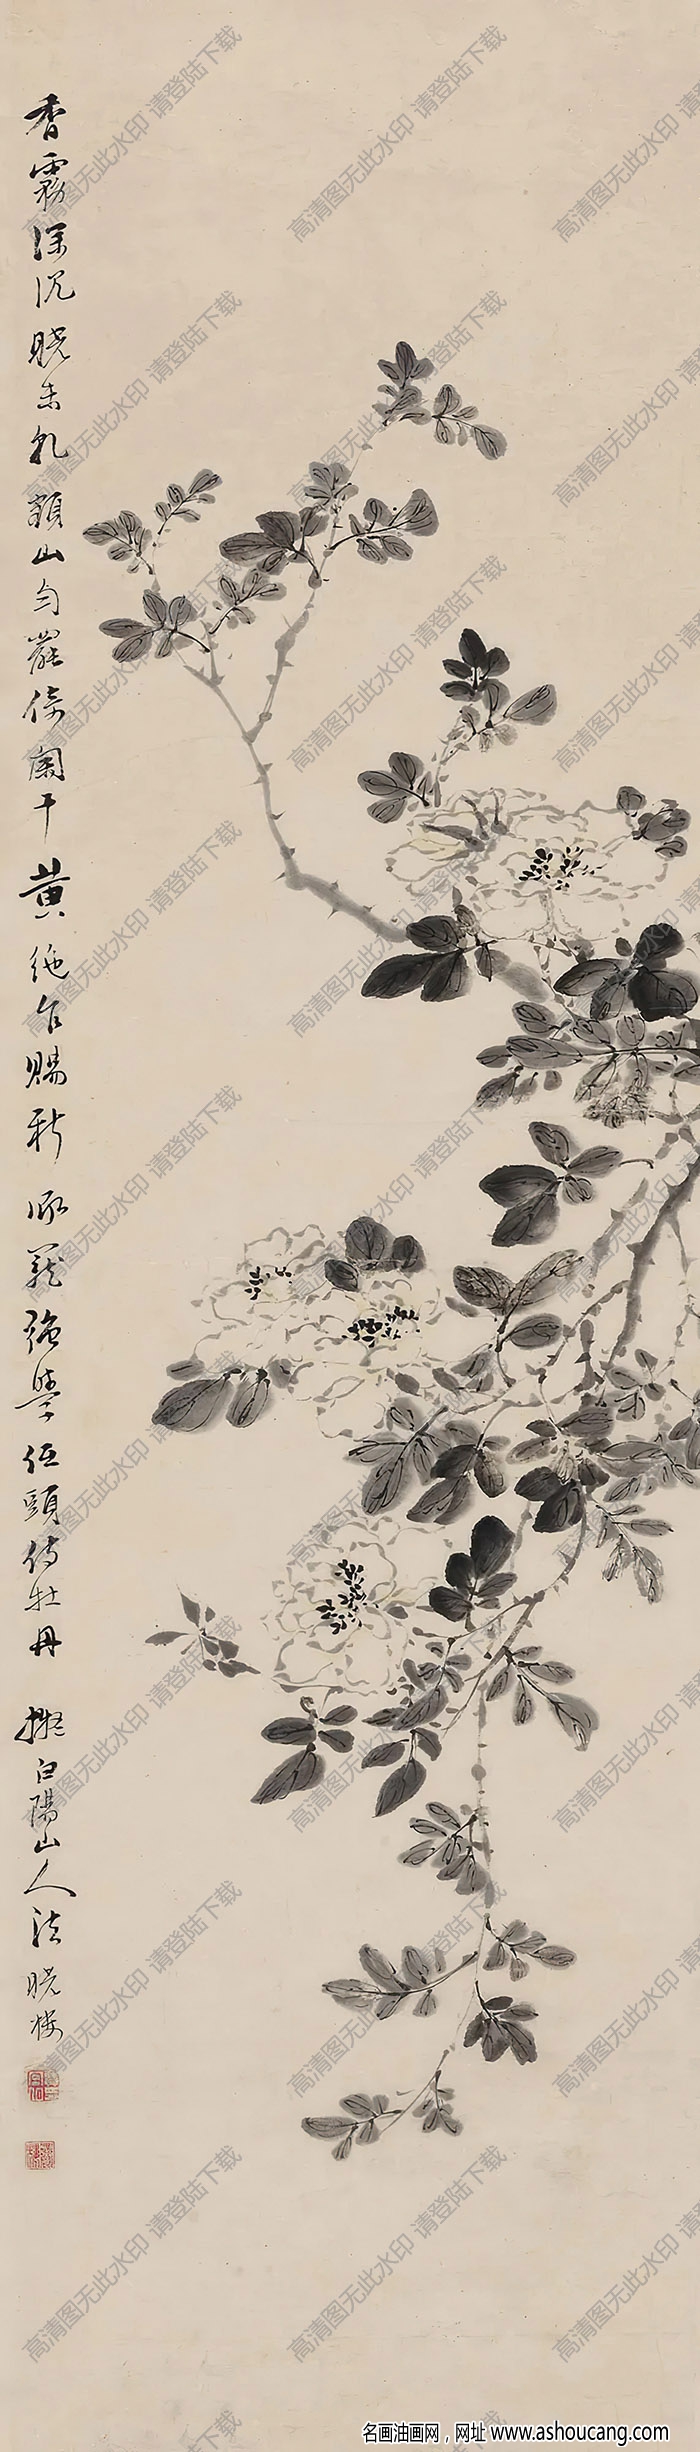 香霧深沉曉未乾額山勻罷倚闌干黃絁乍賜新承寵強學低頭侍牡丹 擬白陽山人法曉樓
高清图无此水印 请登陆下载
名画油画网，网址 www.ashoucang.com